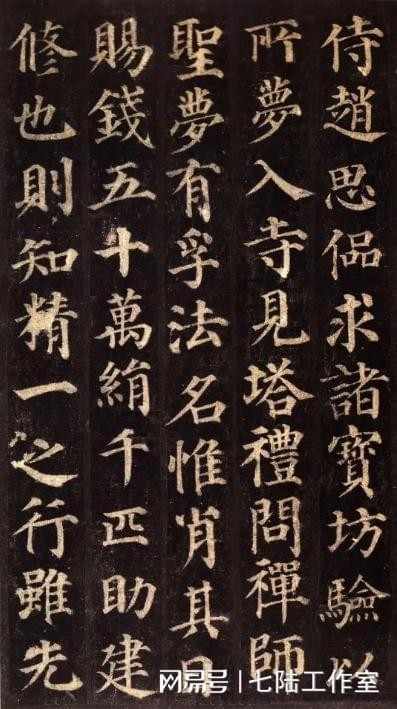 侍趙思侃求諸寶坊驗以
所夢入寺見塔禮問禪師
聖夢有孚法名惟肖其日
賜錢五十萬絹千匹助建
修也則知精一之行雖先
网易号 | 七陆工作室